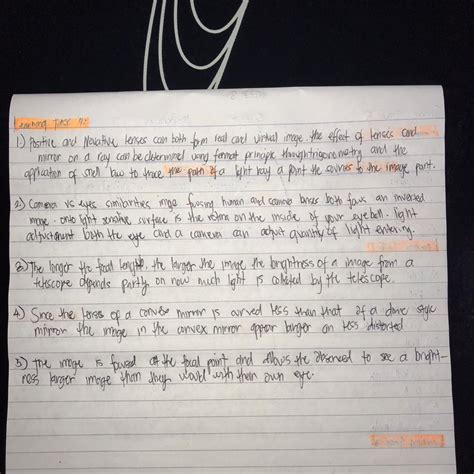 Learning Task 7:
1) Positive and Negative lenses can both form real and virtual image. the effect of lenses and
mirror on a ray can be determined using format principle through trigonometry and the
application of snell law to trace the path of a light ray a point the sources to the image part.
2) Camera vs eyes similarities image fousing human and camera lenses both fows an inverted
image. one light sensitive surface is the retina on the inside of your eye ball. light
adjustement both the eye and a camera can adjust quantity of light entering.
3) The longer the focal length, the larger the image the brightness of a image from a
telescope depends partly on how much light is collected by the telescope.
4) Since the lenses of a convex mirror is curved less than that of a dome style
mirror the image in the convex mirror appear larger an less distorted
5) The image is foused at the focal point and allows the observed to see a bright-
ness larger image than they would with their own eye.